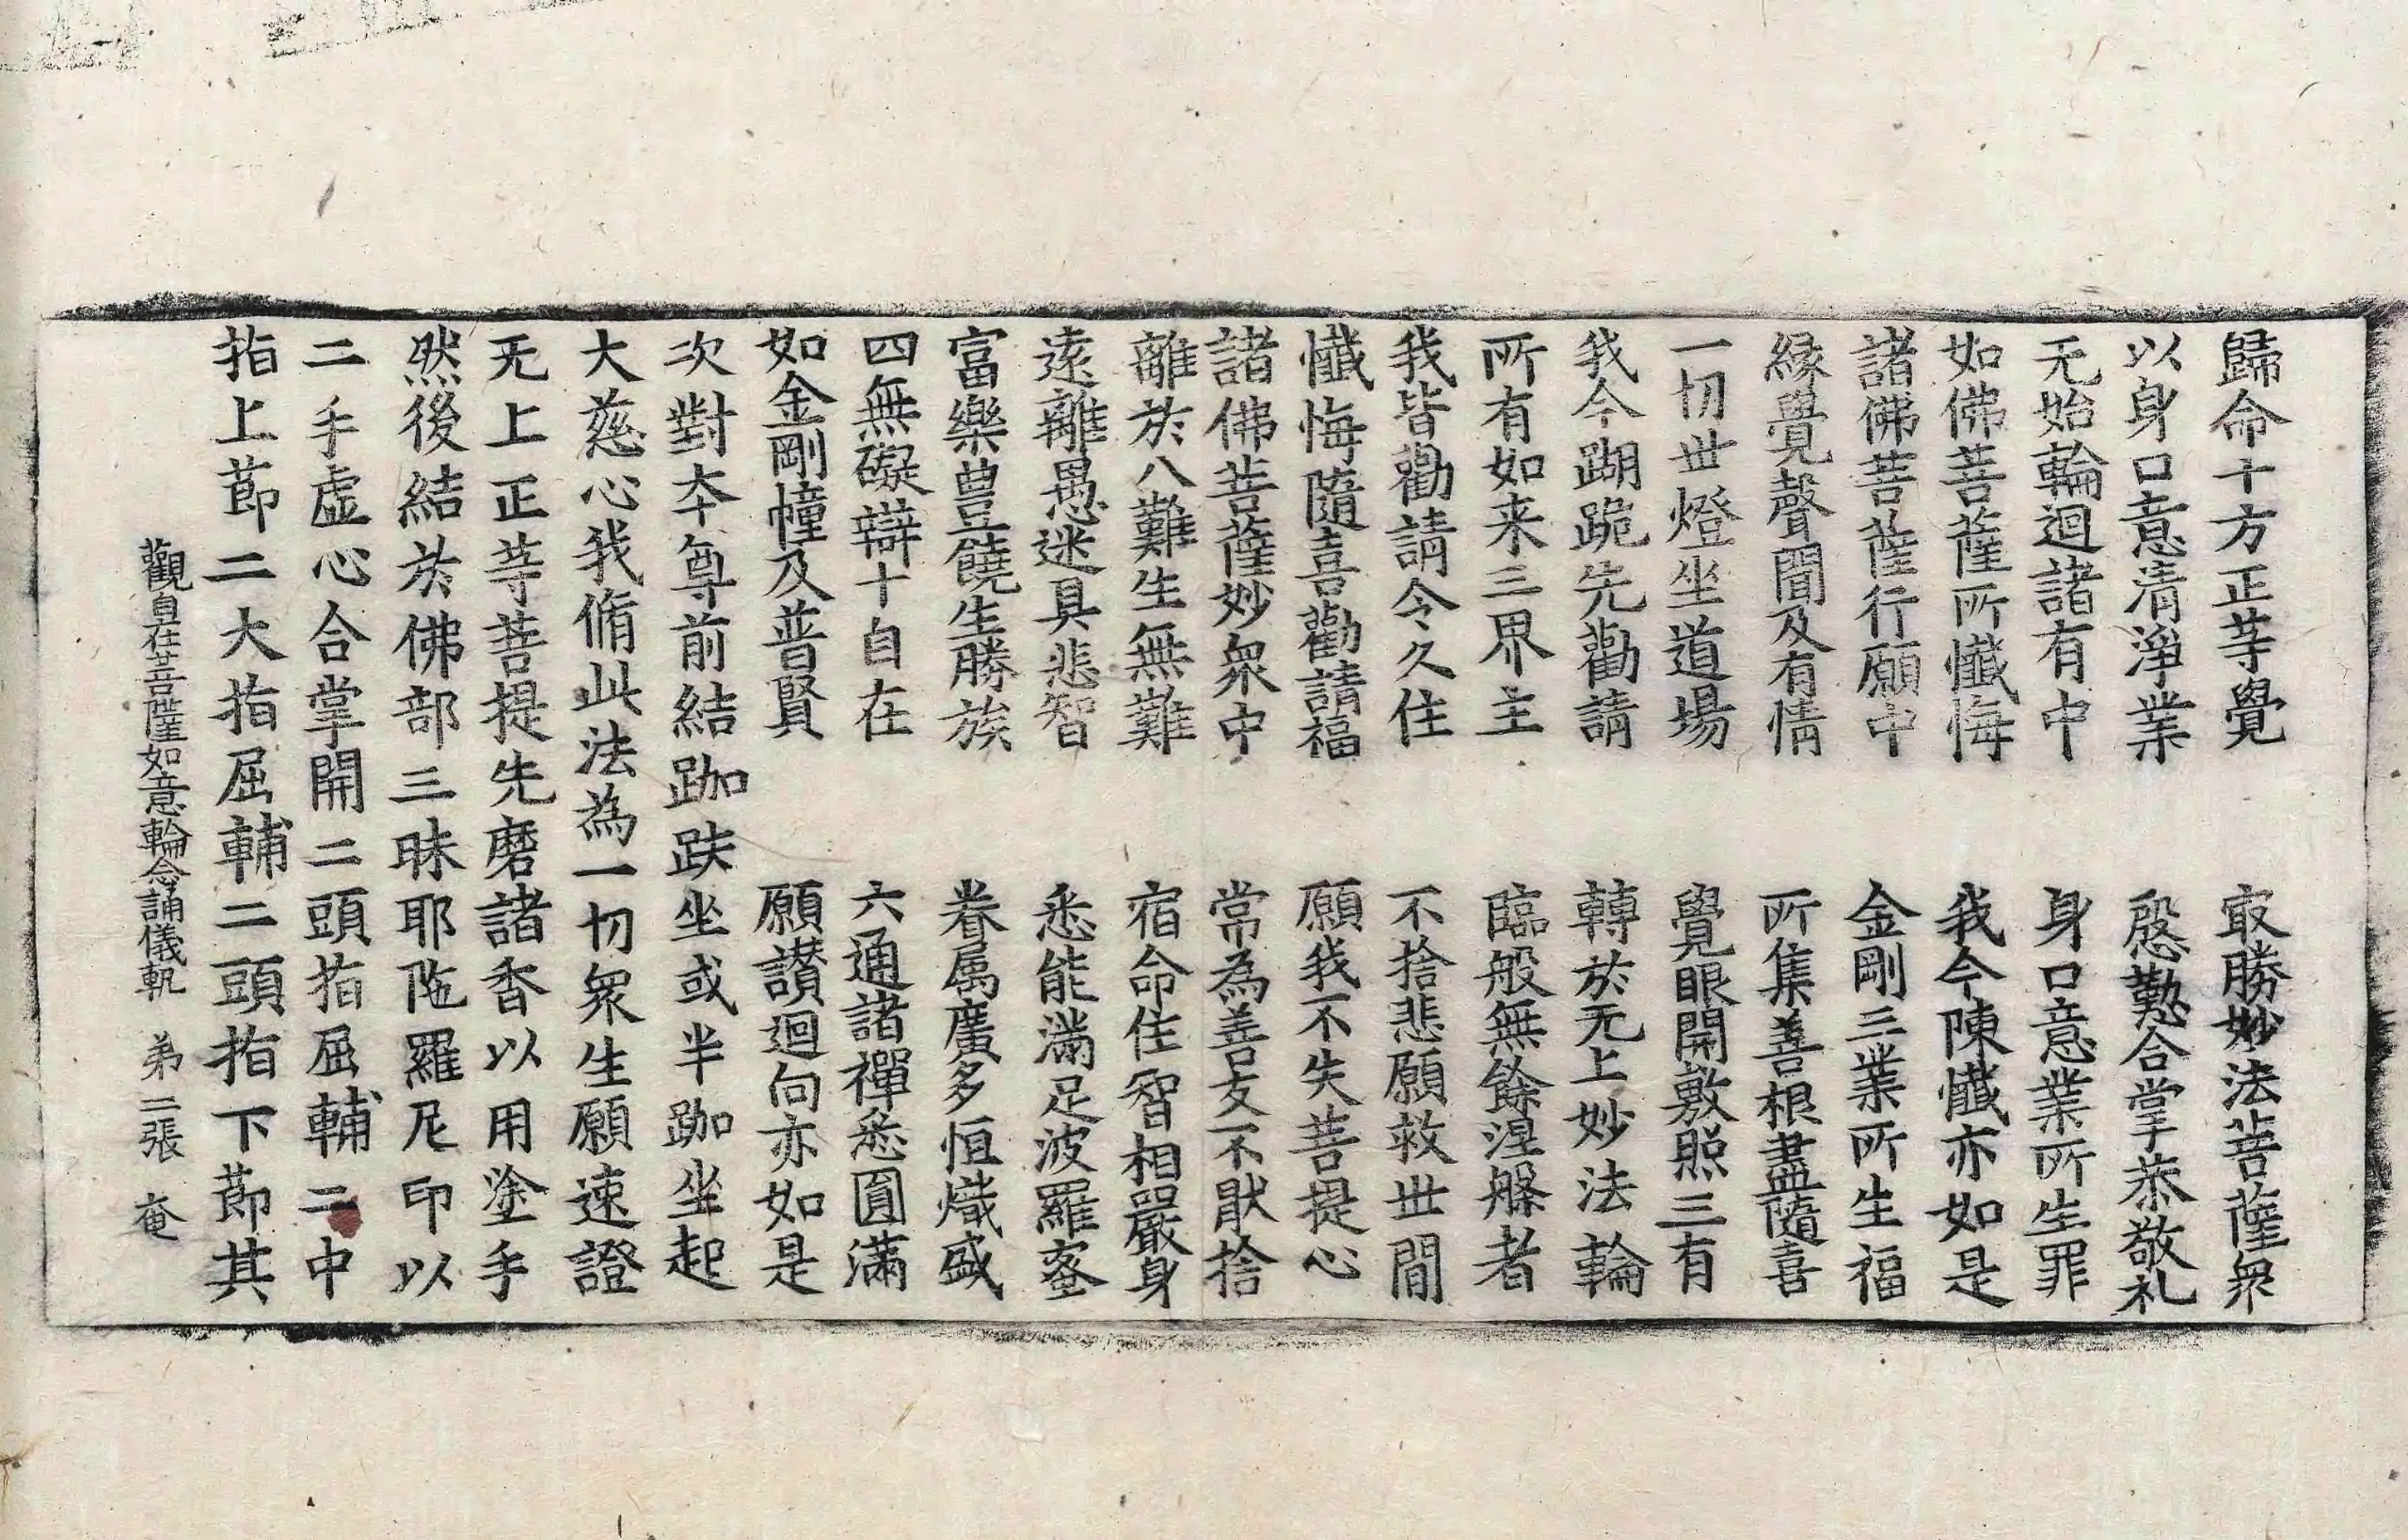 歸命十方正䓁覺　㝡勝妙法菩薩衆
以身口意清淨業　慇懃合掌恭敬礼
无始輪迴諸有中　身口意業所生罪
如佛菩薩所懺悔　我今陳懺亦如是
諸佛菩薩行願中　金剛三業所生福
緣覺聲聞及有情　所集善根盡隨喜
一切世燈坐道場　覺眼開敷照三有
我今蹰跪先勸請　轉於无上妙法輪
所有如来三界主　臨般無餘涅槃者
我皆勸請令久住　不捨悲願救世間
懺悔隨喜勸請福　願我不失菩提心
諸佛菩薩妙衆中　常為善友不猒捨
離於八難生無難　宿命住智相嚴身
遠離愚迷具悲智　悉能滿足波羅蜜
富樂豊饒生勝族　眷属廣多恒熾盛
四無礙辯十自在　六通諸禪悉圓滿
如金剛幢及普賢　願讃迴向亦如是
次對本尊前結跏趺坐或半跏坐起
大慈心我脩此法為一切衆生願速證
无上正䓁菩提先磨諸香以用塗手
然後結於佛部三昧耶陁羅尼印以
二手虛心合掌開二頭指屈輔二中
指上莭二大指屈輔二頭指下莭其
觀自在菩薩如意輪念誦儀軌　弟二張　奄